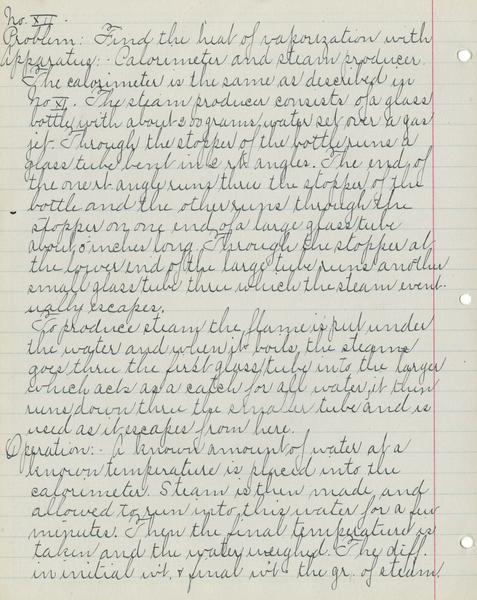 No. XII.
Problem: Find the heat of vaporization with
Apparatus:- Calorimeter and steam producer.
The calorimeter is the same as described in
no XI. The steam producer consists of a glass
bottle with about 200 grams water set over a gas
jet. Through the stopper of the bottle runs a
glass tube bent in 2 rt angles. The end of
the one rt angle runs thru the stopper of the
bottle and the other runs through the
stopper on one end of a large glass tube
about 5 inches long. Through the stopper at
the lower end of the large tube runs another
small glass tube thru which the steam event-
ually escapes.
To produce steam the flame is put under
the water and when it boils the steam
goes thru the first glass tube into the larger
which acts as a catch for all water, it then
runs down thru the smaller tube and is
used as it escapes from here.
Operation:- A known amount of water at a
known temperature is placed into the
calorimeter. Steam is then made and
allowed to run into this water for a few
minutes. Then the final temperature is
taken and the water weighed. The diff.
in initial wt. & final wt - the gr. of steam.